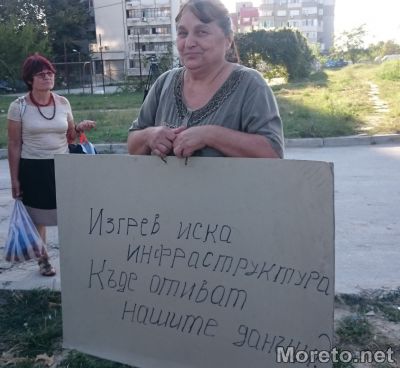 Изгрев иска
инфраструктура
Къде отиват
нашите данъци?
Moreto.net